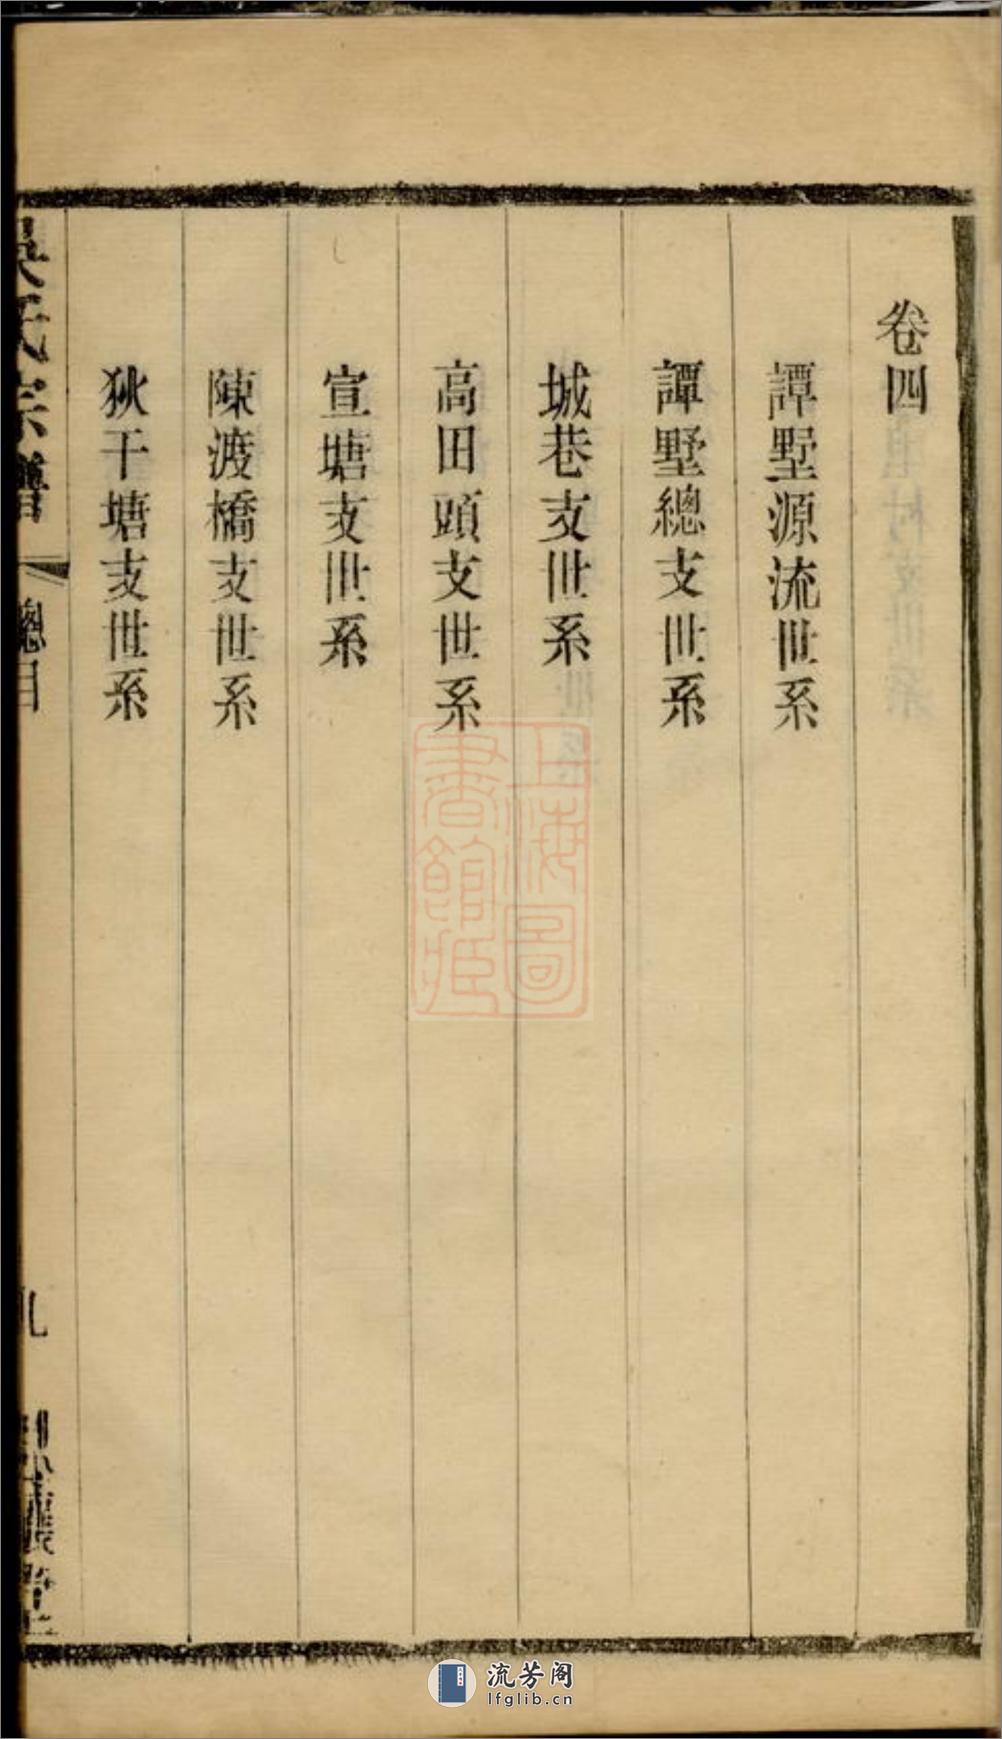 卷四
譚墅源流世系
譚墅總支世系
城巷支世系
高田頭支世系
宣塘支世系
陳渡橋支世系
狄干塘支世系
吳氏宗譜
總目
九
上海圖書館藏
流芳阁
lfglib.cn